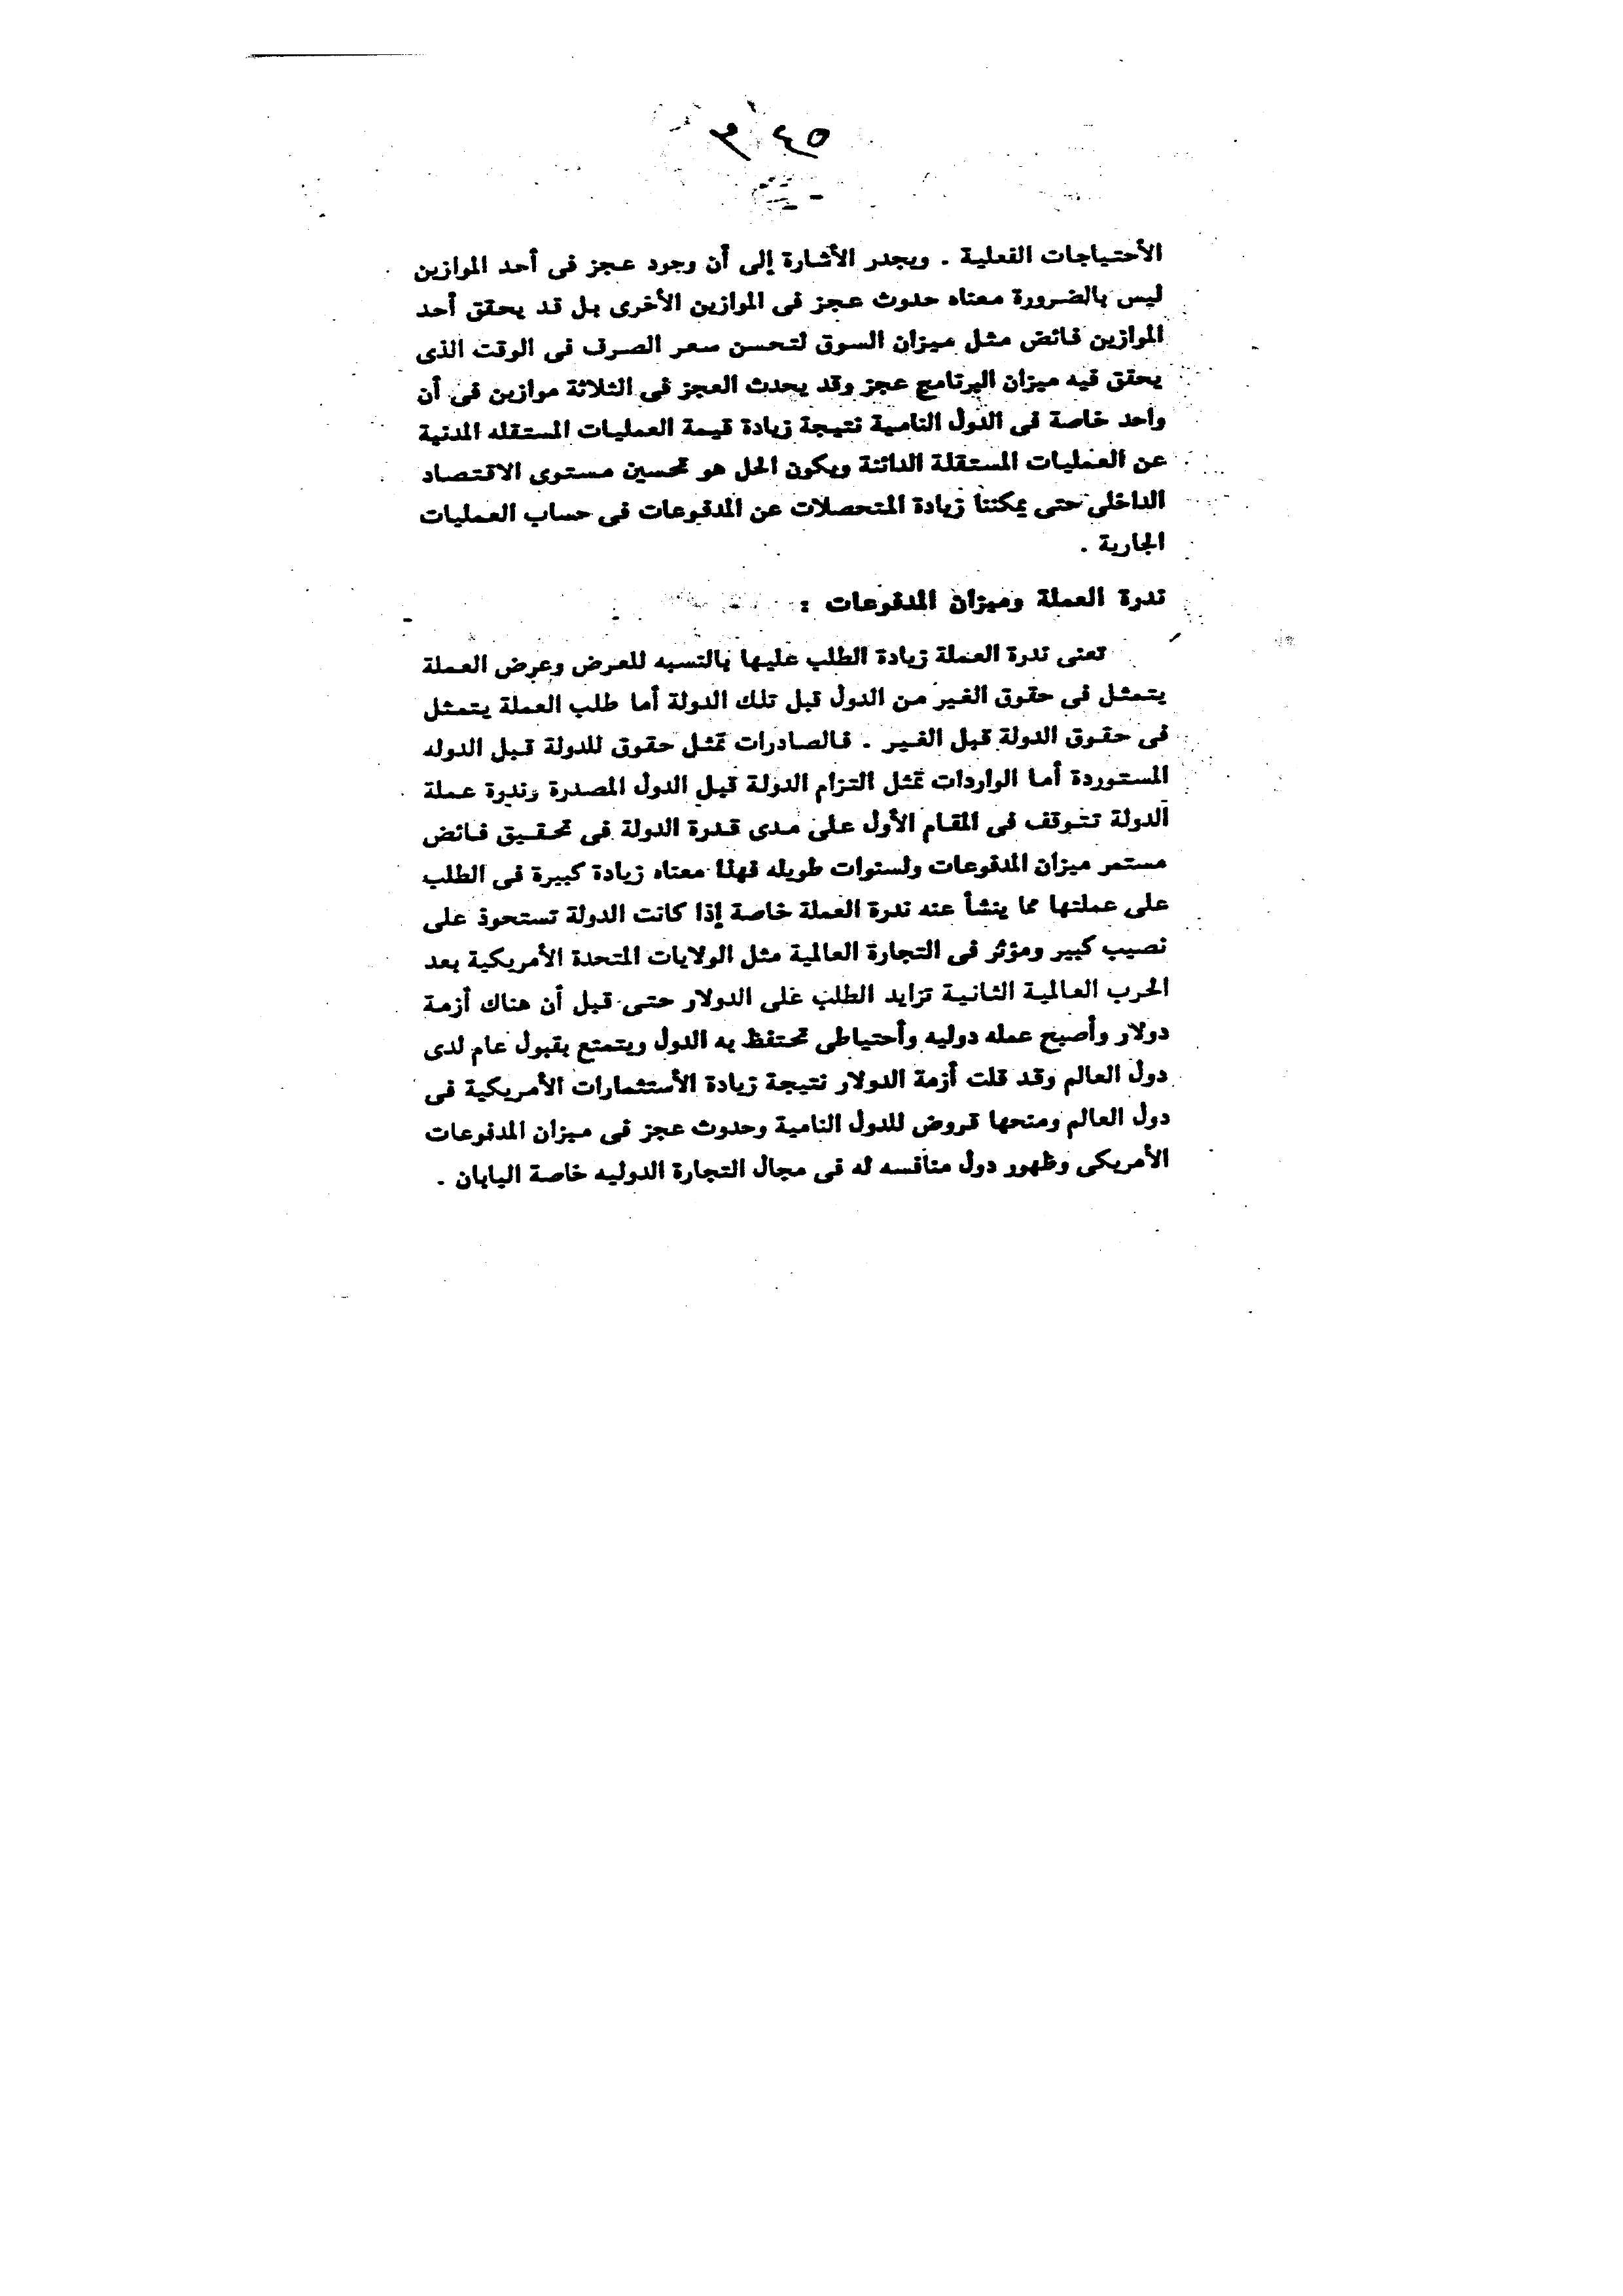 ٣٤٥
الأحتياجات الفعلية . ويجدر الأشارة إلى أن وجود عجز فى أحد الموازين
ليس بالضرورة معناه حدوث عجز فى الموازين الأخرى بل قد يحقق أحد
الموازين فائض مثل ميزان السوق لتحسن سعر الصرف فى الوقت الذى
يحقق فيه ميزان البرنامج عجز وقد يحدث العجز فى الثلاثة موازين فى أن
واحد خاصة فى الدول النامية نتيجة زيادة قيمة العمليات المستقله المدنية
عن العمليات المستقلة الدائنة ويكون الحل هو تحسين مستوى الاقتصاد
الداخلى حتى يمكننا زيادة المتحصلات عن المدفوعات فى حساب العمليات
الجارية .
ندرة العملة وميزان المدفوعات :
تعنى ندرة العملة زيادة الطلب عليها بالنسبه للعرض وعرض العملة
يتمثل فى حقوق الغير من الدول قبل تلك الدولة أما طلب العملة يتمثل
فى حقوق الدولة قبل الغير . فالصادرات تمثل حقوق للدولة قبل الدوله
المستوردة أما الواردات تمثل التزام الدولة قبل الدول المصدرة وندوة عملة
الدولة تتوقف فى المقام الأول على مدى قدرة الدولة فى تحقيق فائض
مستمر ميزان المدفوعات ولسنوات طويله فهذا معناه زيادة كبيرة فى الطلب
على عملتها مما ينشأ عنه ندرة العملة خاصة إذا كانت الدولة تستحوذ على
نصيب كبير ومؤثر فى التجارة العالمية مثل الولايات المتحدة الأمريكية بعد
الحرب العالمية الثانية تزايد الطلب على الدولار حتى قيل أن هناك أزمة
دولار وأصبح عمله دوليه وأحتياطى تحتفظ به الدول ويتمتع بقبول عام لدى
دول العالم وقد قلت أزمة الدولار نتيجة زيادة الأستثمارات الأمريكية فى
دول العالم ومنحها قروض للدول النامية وحدوث عجز فى ميزان المدفوعات
الأمريكى وظهور دول منافسه له فى مجال التجارة الدوليه خاصة اليابان .